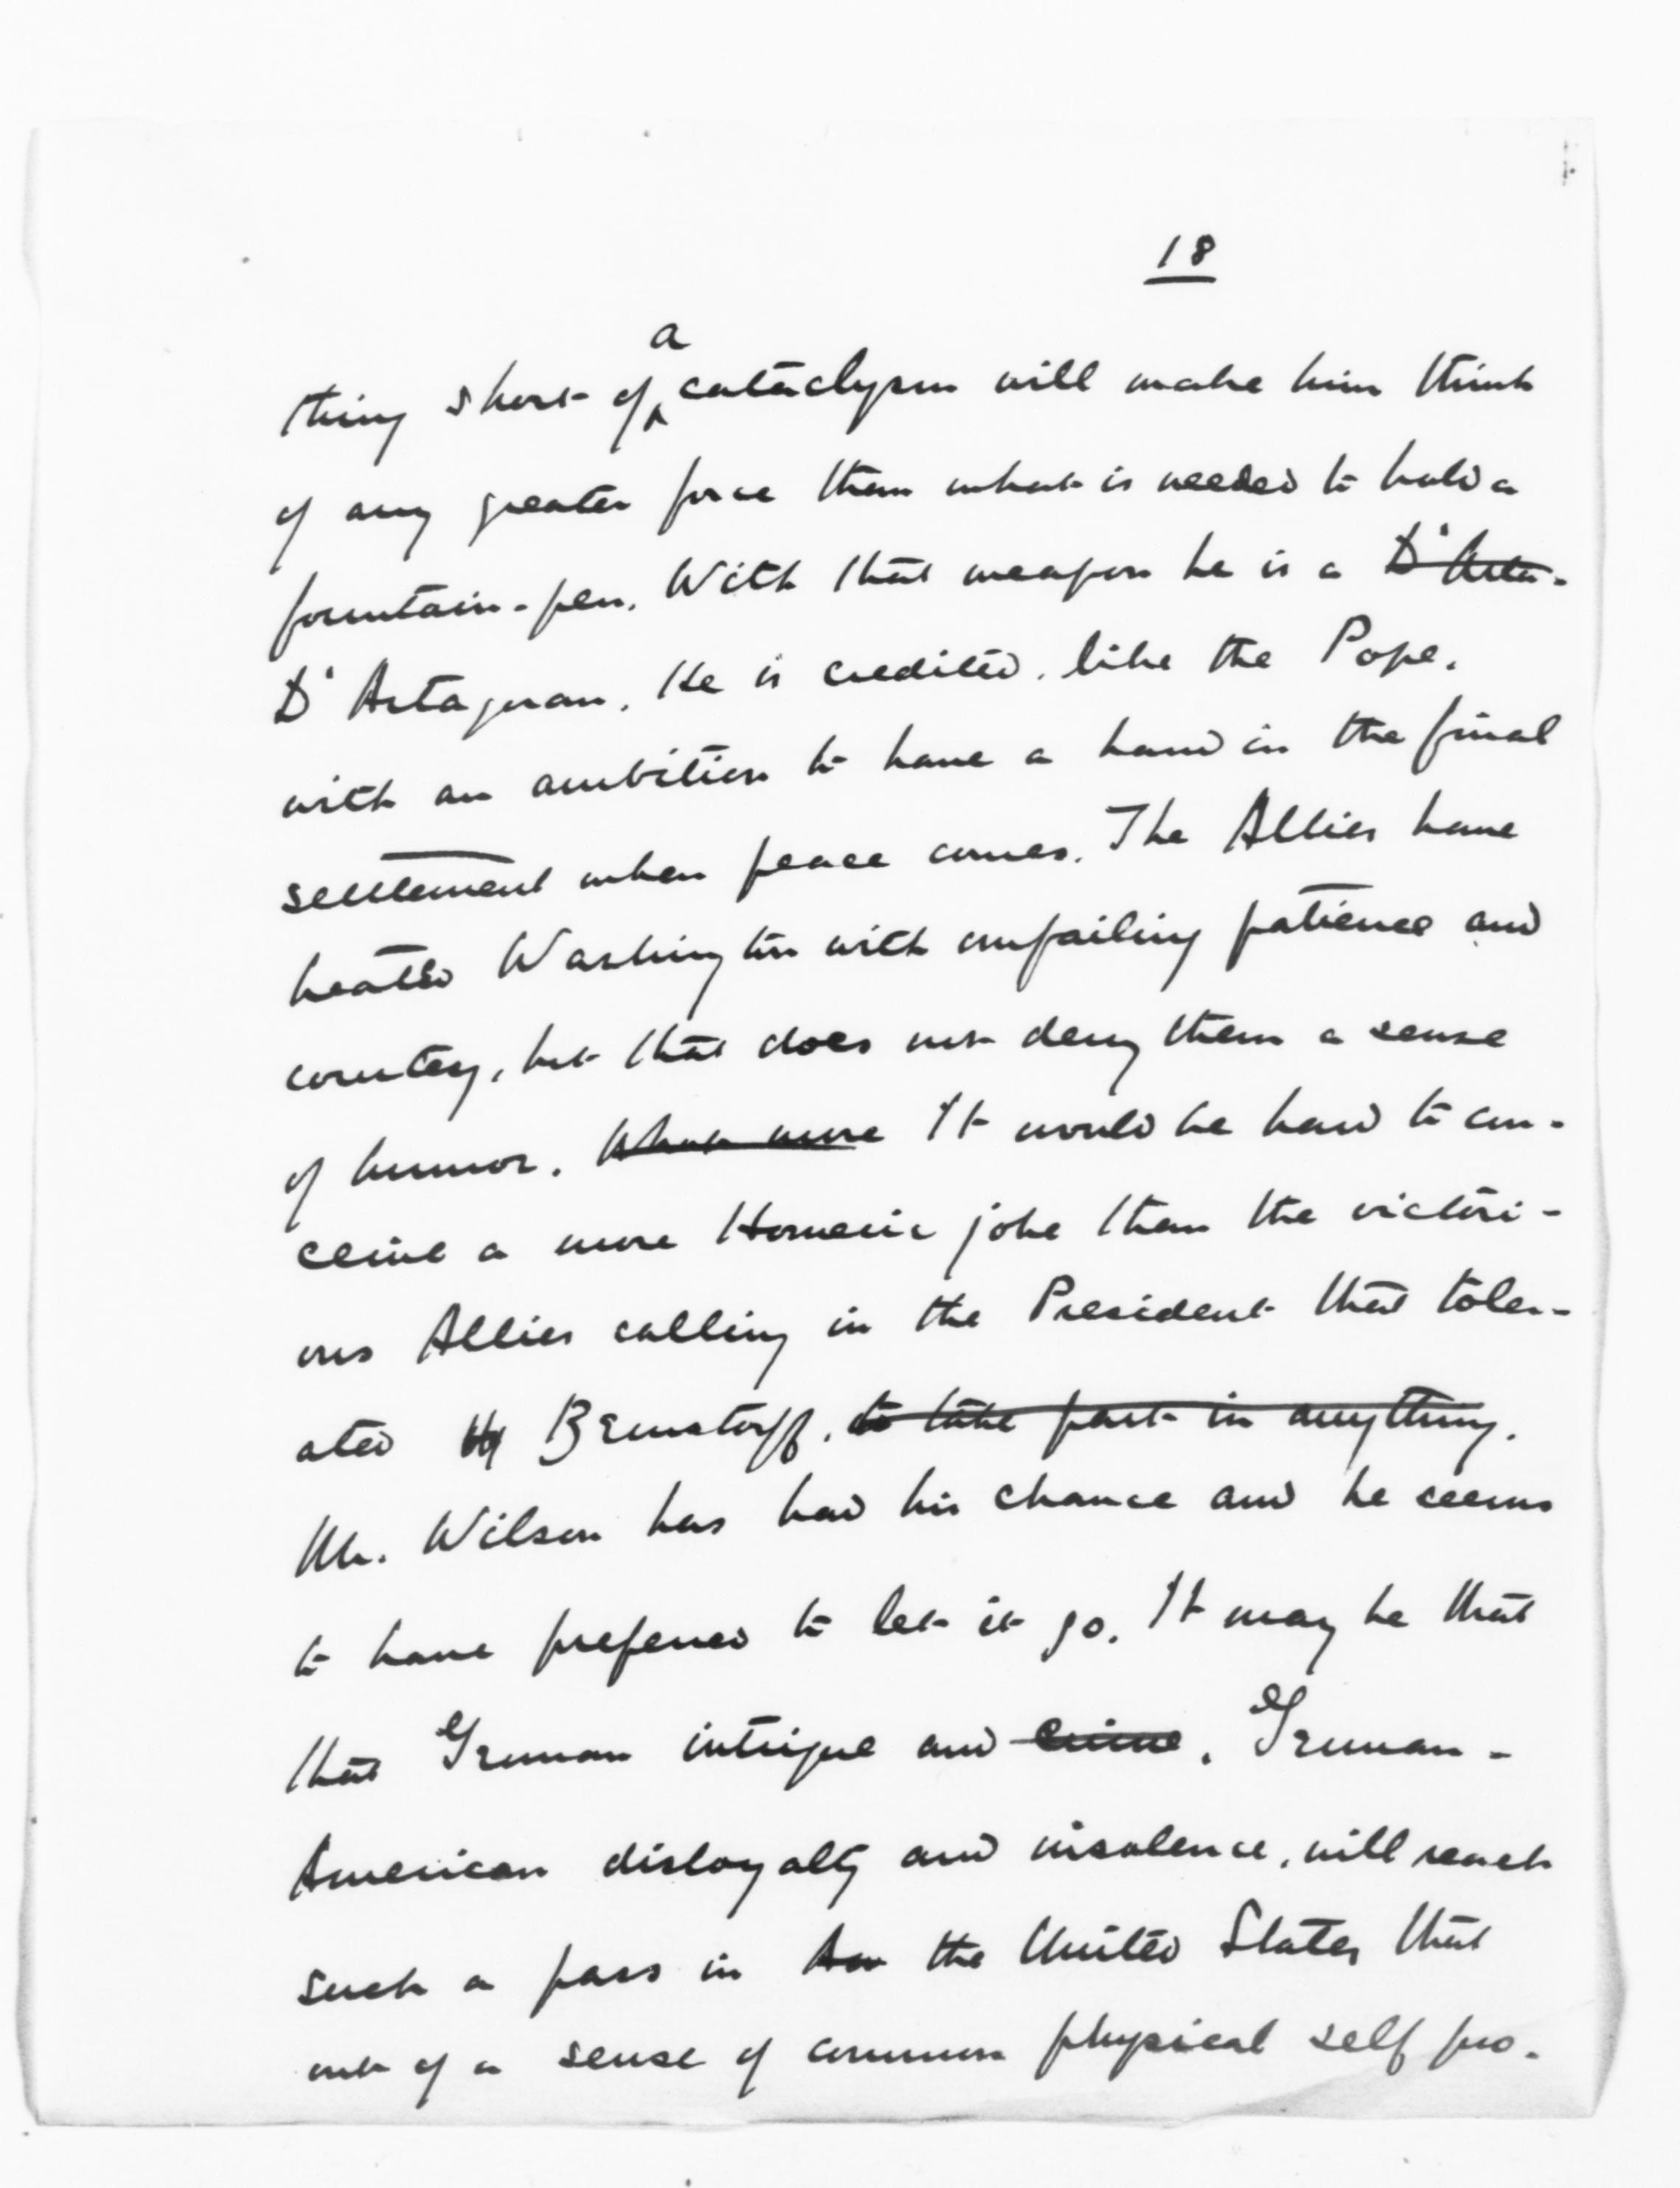 18
a
thing short of cataclysm will make him think
of any greater force than what is needed to hold a
fountain-pen. With that weapon he is a D'Arta-
D'Artagnan. He is credited, like the Pope,
with an ambition to have a hand in the final
settlement when peace comes. The Allies have
heated Washington with unfailing patience and
courtesy, but that does not deny them a sense
of humor. What more It would be hard to con-
ceive a more Homeric joke than the victori-
ous Allies calling in the President that toler-
ated Bernstorff, to take part in anything.
Mr. Wilson has had his chance and he seems
to have preferred to let it go. It may be that
that German intrigue and crime, German-
American disloyalty and insolence, will reach
such a pass in Am the United States that
out of a sense of common physical self pro-